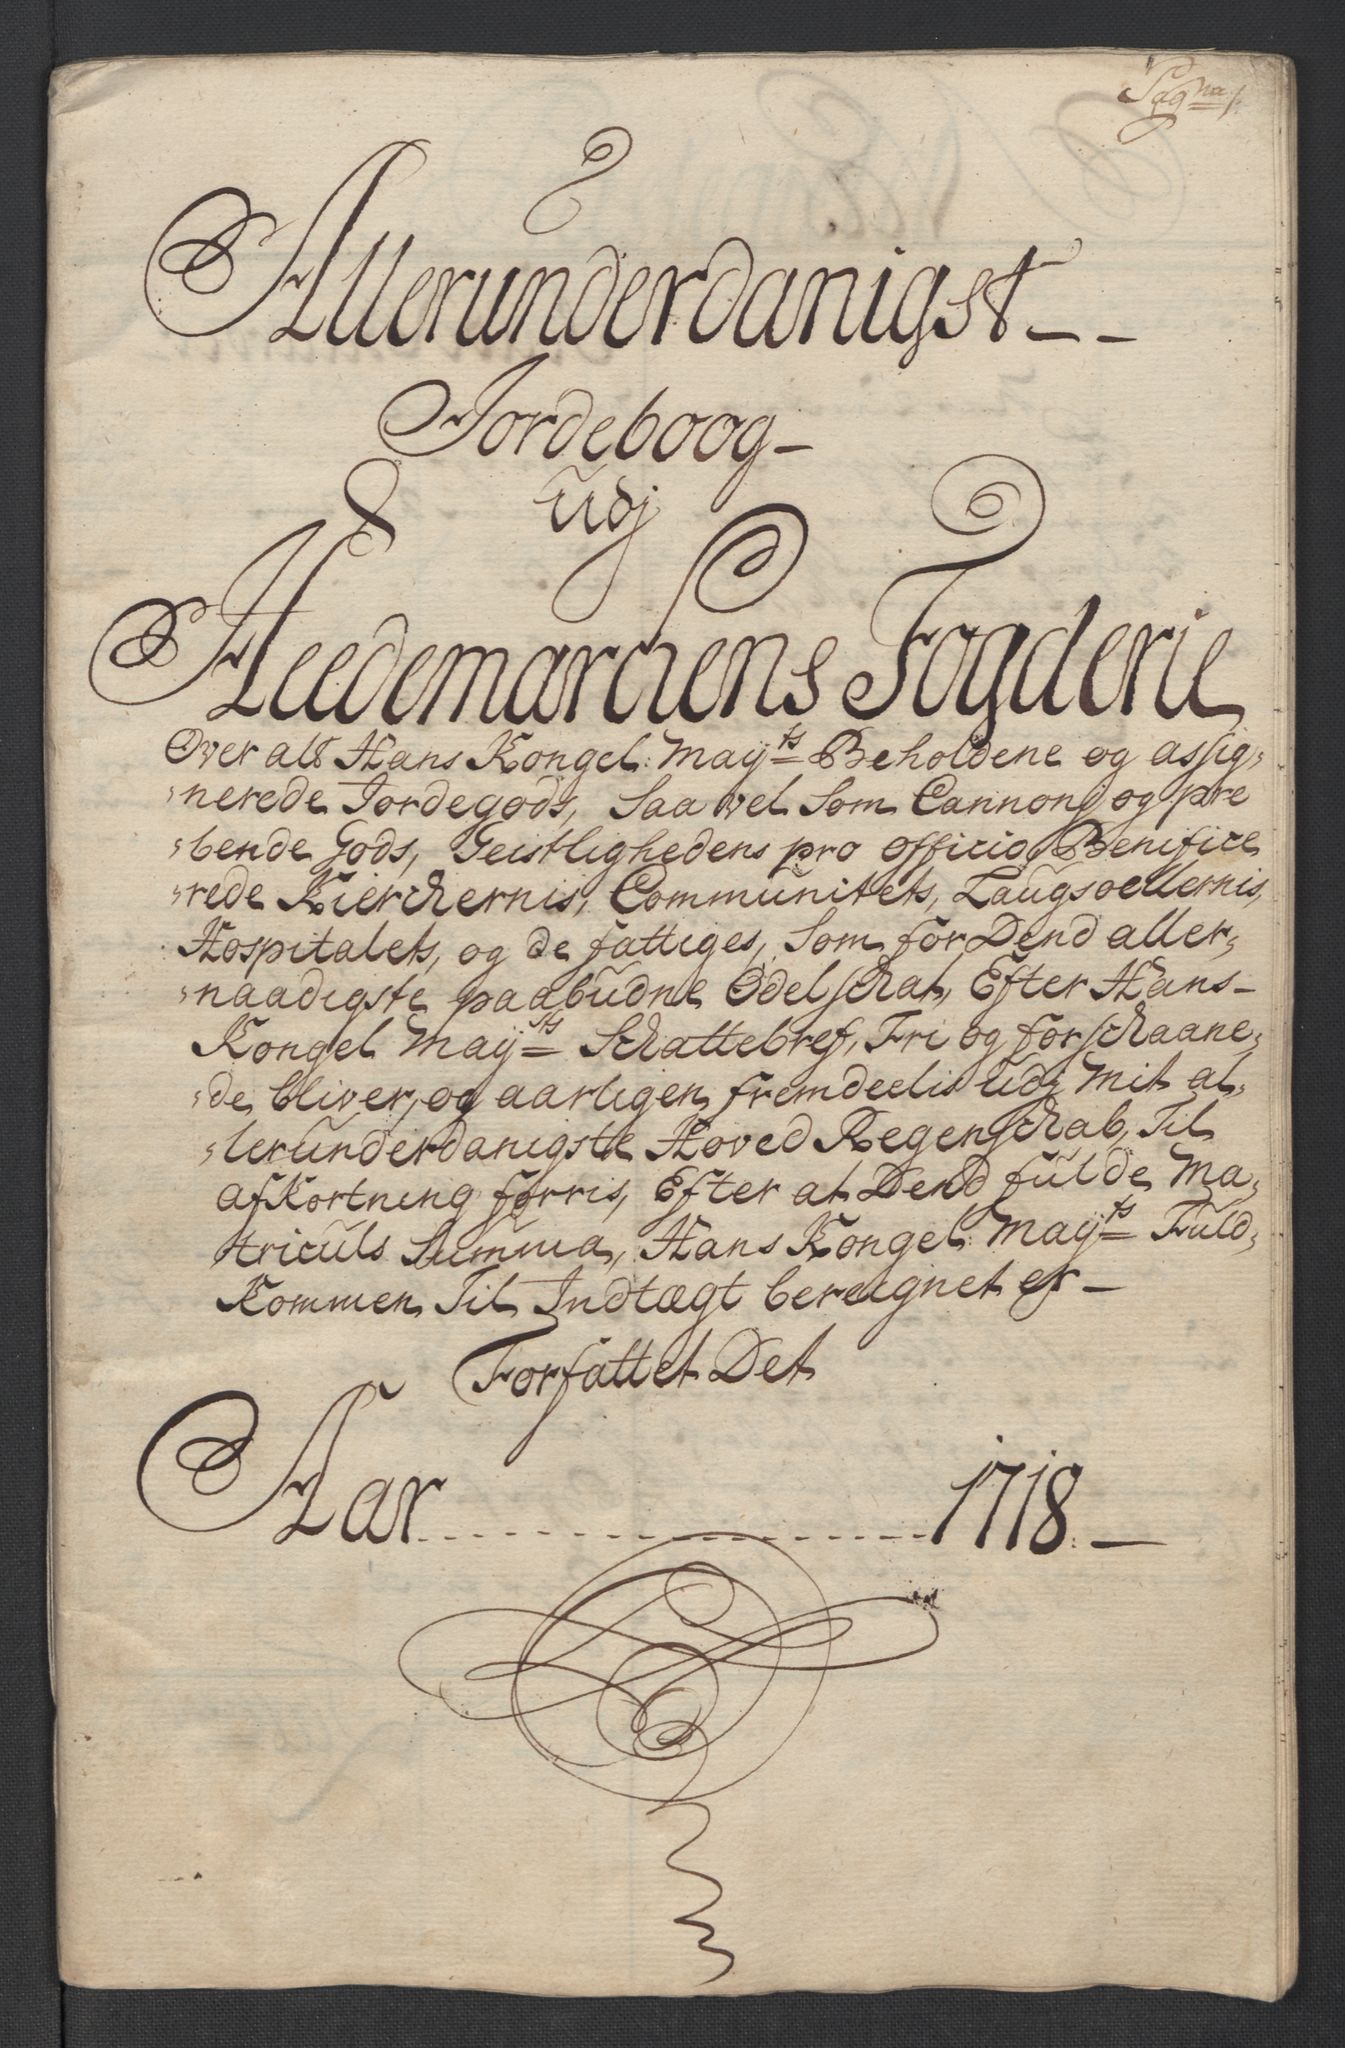 Pagna 1.
Allerunderdanigst--
Jordeboog-
Udj
Heedemarchens Fogderie
Over alt Hans Kongel: Mayts Beholdene og assig-
nerede Jordegods, Saa vel Som Cannonj og pre
bende Gods, Geistlighedens pro officio Benifice
rede Kierchernis, Communitets, Laugsoellernis,
Hospitalets, og de fattiges, Som for Dend aller-
naadigste paabudne Odelschat, Efter Hans-
Kongel Mayts Schattebref, Fri og forschaane-
de bliver, og aarligen fremdeelis Udj Mit al-
lerunderdanigste Hoved Regenschab, Til
afKortning førris, Efter at Dend fulde Ma-
triculs Summa, Hans Kongel: Mayts Fuld-
Kommen Til Indtægt bereignet er-
Forfattet Det
Aar..................1718.-